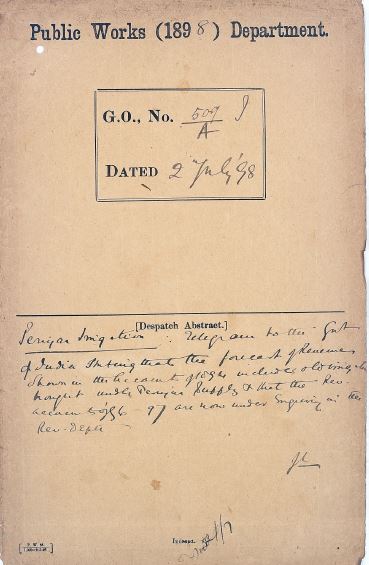 Public Works (1898) Department.
G.O., No. 507 I
A
DATED 2 July '98
[Despatch Abstract.]
Periyar Irrigation. Telegram to the Govt
of India stating that the forecast of Revenue
shown in the account of 1894 includes old irrign
brought under Periyar supply & that the Rev.
accounts of 96-97 are now under enquiry in the
Rev. Dept